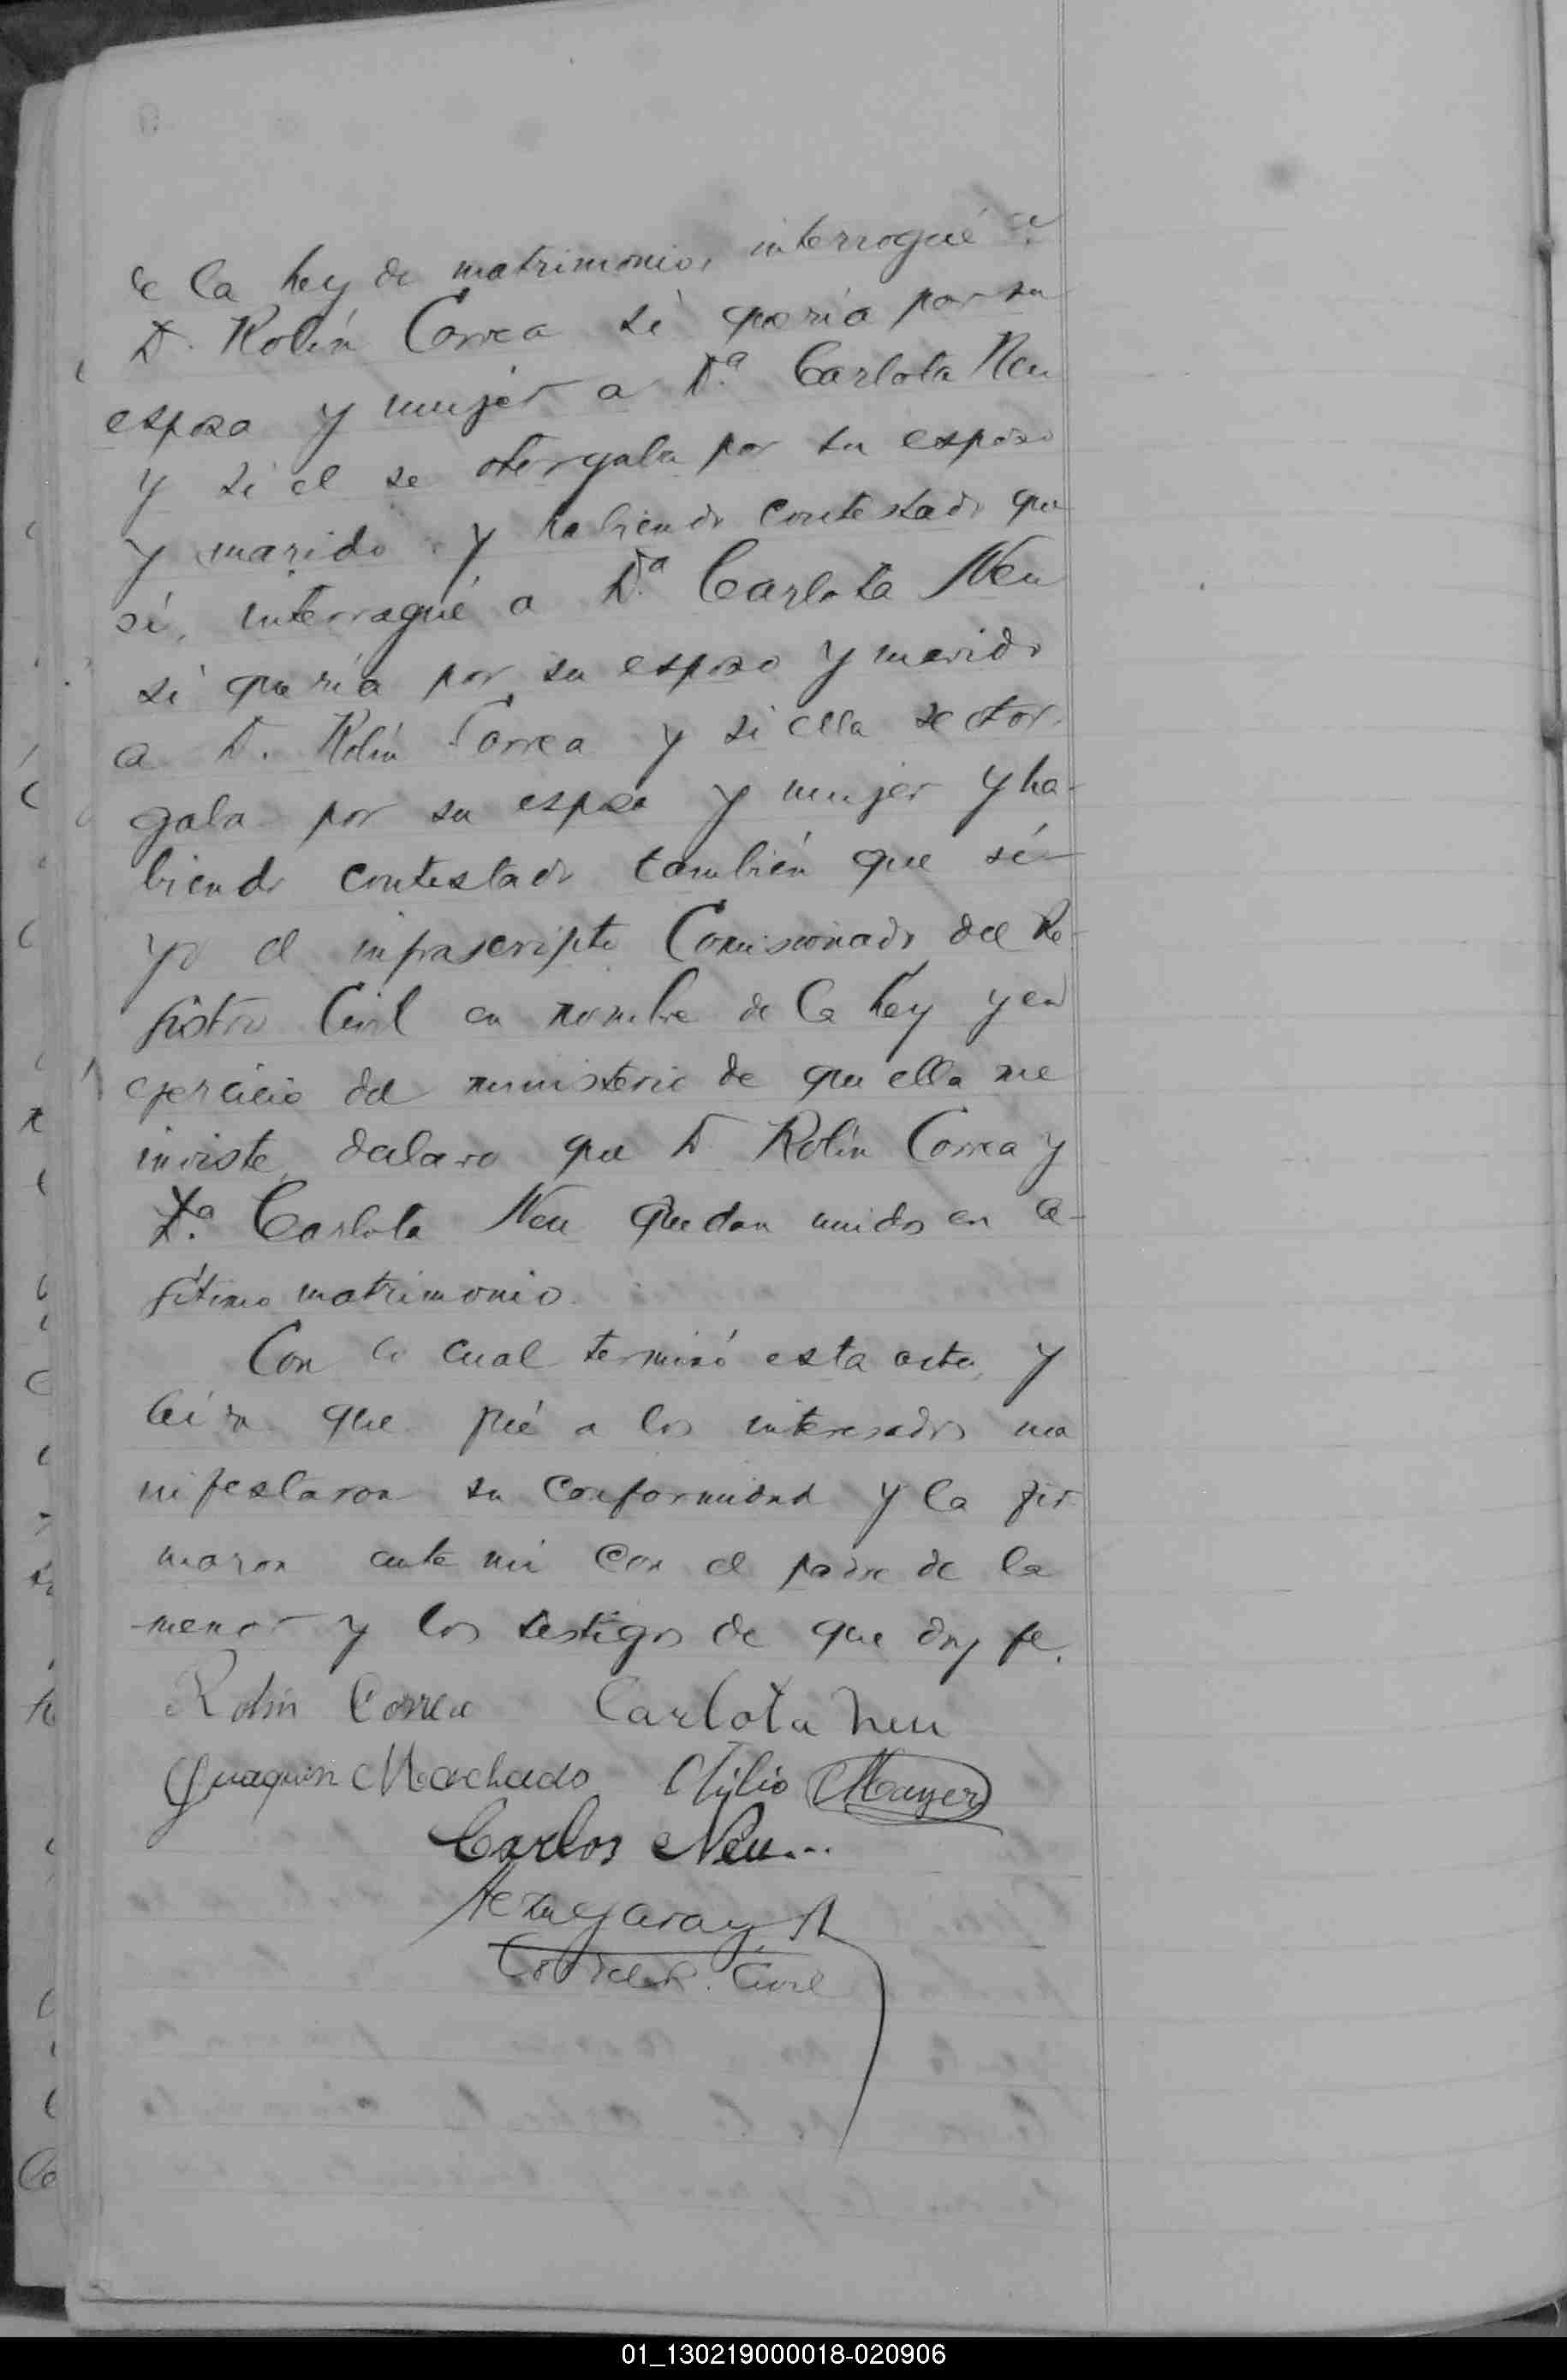 de la Ley de matrimonio, interrogué a
D. Rolín Correa si quería por su
esposa y mujer a D.ª Carlota Neu
y si el se otorgaba por su esposo
y marido y habiendo contestado que
sí, interrogué a D.ª Carlota Neu
si quería por su esposo y marido
a D. Rolín Correa y si ella se otor-
gaba por su esposa y mujer y ha-
biendo contestado también que sí
yo el infrascripto Comisionado del Re-
gistro Civil en nombre de la Ley y en
ejercicio del ministerio de que ella me
inviste, declaro que D. Rolín Correa y
D.ª Carlota Neu quedan unidos en le-
gítimo matrimonio.
Con lo cual terminó esta acta, y
leída que fué a los interesados ma
nifestaron su conformidad y la fir
maron ante mi con el padre de la
menor y los testigos de que doy fe.
Rolin Correa Carlota Neu
Juaquin Machado Otilio Mayer
Carlos Neu...
del R. Civil
01_130219000018-020906